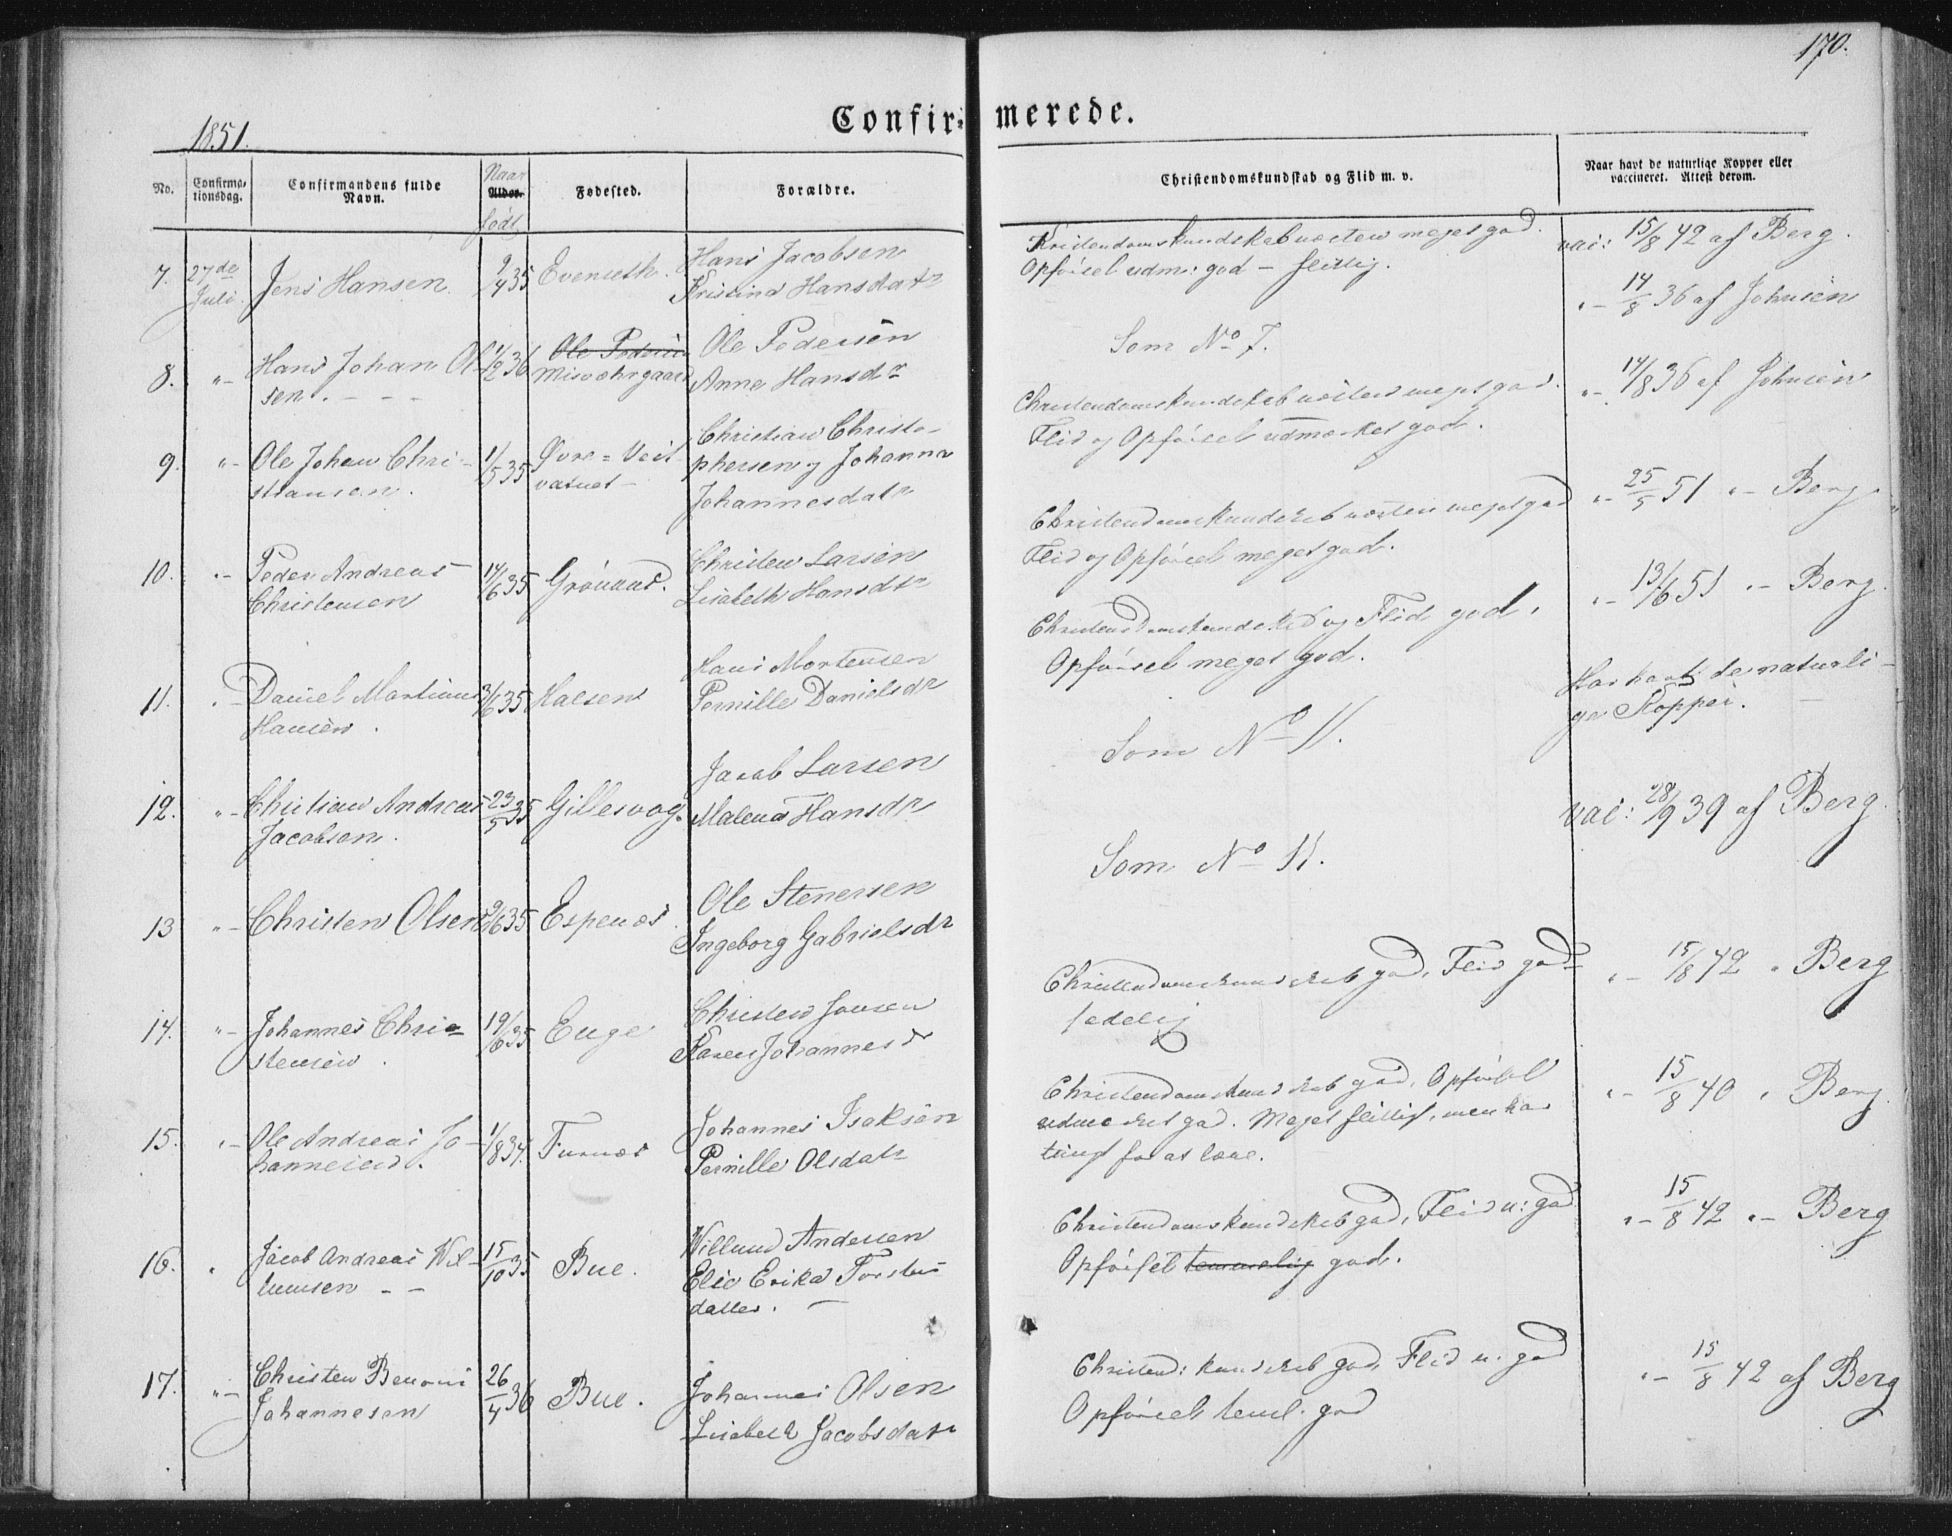 170.
1851.
Confir= merede.
No.
Confirma-
tionsdag.
Confirmandens fulde
Navn.
Naar
Alder.
født
Fødested.
Forældre.
Christendomskundskab og Flid m. v.
Naar havt de naturlige Kopper eller
vaccineret. Attest derom.
7. 27de Juli. Jens Hansen 9/4 35 Evenseth. Hans Jacobsen
Kristina Hansdatr
Kristendomskundskab næsten meget god.
Opførsel udm: god – flittig.
vac: 15/8 42 af Berg.
8. "– Hans Johan Ol- 1/2 36 Ole Pedersen Ole Pedersen
sen. – – – Misværhrgaard Anne Hansdr
Som No 7.
"– 14/8 36 af Johnsen
9. "– Ole Johan Chri- 1/5 35 Øvre=Veit- Christian Christo-
stiansen. vatnet – phersen og Johanna
Johannesdatr
Christendomskundskab næsten meget god.
Flid og Opførsel udmærket god.
"– 14/8 36 af Johnsen
10. "– Peder Andreas 14/6 35 Grønaas. Christen Larsen
Christensen Lisabeth Hansdr
Christendomskundskab næsten meget god
Flid og Opførsel meget god.
"– 25/5 51 "– Berg
11. "– Daniel Martinus 3/6 35 Halsen Hans Mortensen
Hansen. Pernille Danielsdr
Christendomskundskab og Flid god.
Opførsel meget god.
"– 13/6 51 "– Berg.
12. "– Christian Andreas 23/5 35 Gillesvog. Jacob Larsen
Jacobsen. Malena Hansdr
Som No 11.
Har havt de naturli-
ge Kopper.
13 "– Christen Olsen 2/6 35 Espenæs. Ole Stenersen
Ingeborg Gabrielsdr
Som No 11.
vac: 28/9 39 af Berg.
14. "– Johannes Chri- 19/6 35 Enge Christen Jonsen
stensen. Karen Johannesdr
Christendomskundskab god, Flid god
sedelig
"– 15/8 42 " Berg
15. "– Ole Andreas Jo- 1/8 34. Furnæs Johannes Isaksen
hannesen. Pernille Olsdatr
Christendomskundskab god, Opførsel
udmærket god. Meget flittig, men har
tungt for at lære.
"– 15/8 40 " Berg.
16. " Jacob Andreas Wil- 15/10 35 Bue. Willum Andersen
lumsen – – Else Erika Torstens
datter. –
Christendomskundskab god, Flid u: god
Opførsel temmelig god.
"– 15/8 42 "– Berg
17. "– Christen Benoni 26/4 36 Bue. Johannes Olsen
Johannesen Lisabeth Jacobsdatr
Christend: kundskab god, Flid u. god
Opførsel teml. god
"– 15/8 42 af Berg